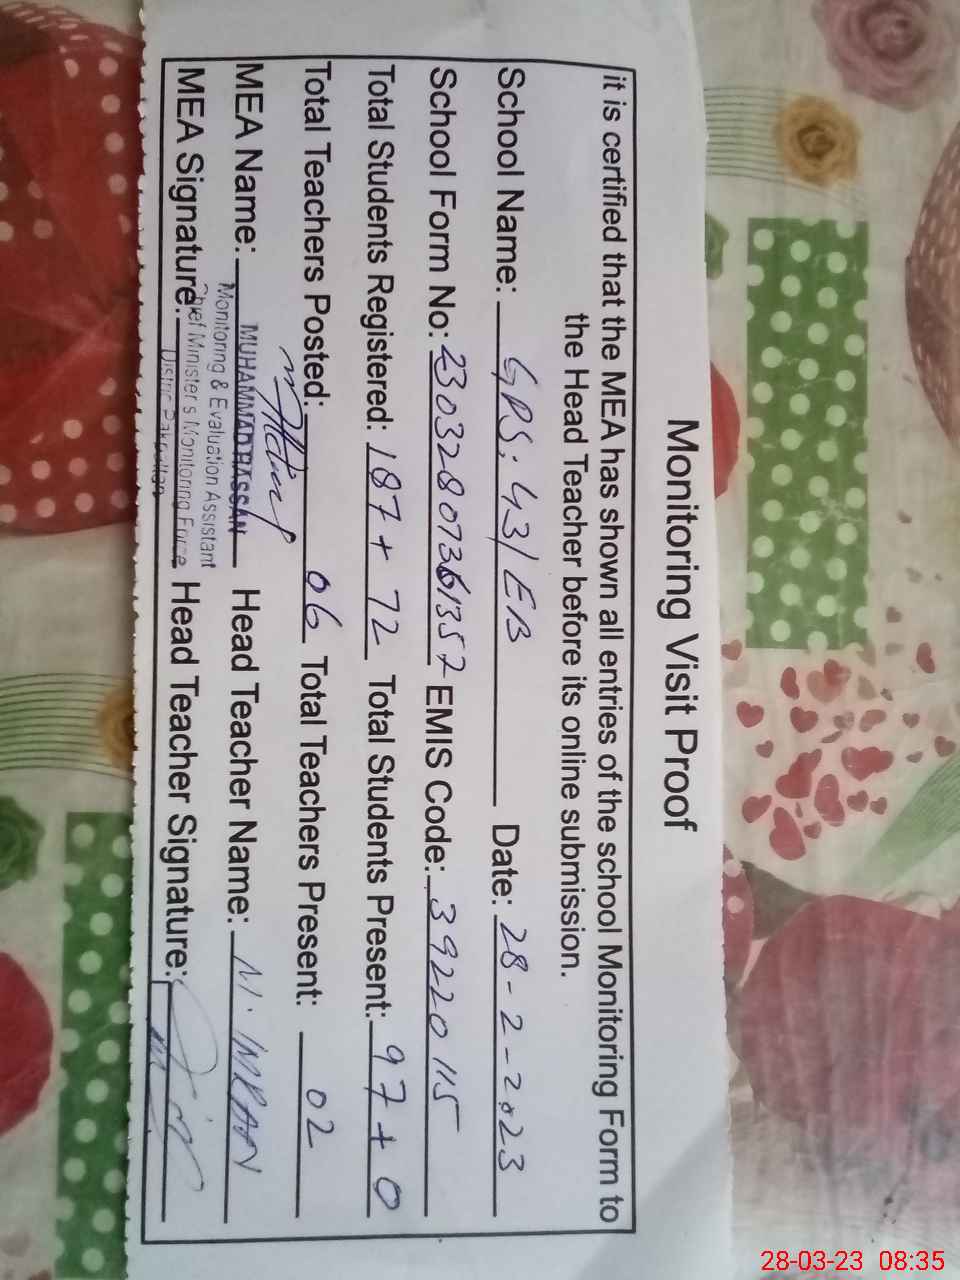 Monitoring Visit Proof
it is certified that the MEA has shown all entries of the school Monitoring Form to
the Head Teacher before its online submission.
School Name: GPS. 43/EB Date: 28-2-2023
School Form No: 23032807361357 EMIS Code: 39220115
Total Students Registered: 187+72 Total Students Present: 97+0
Total Teachers Posted: 06 Total Teachers Present: 02
MEA Name: MUHAMMAD HASSAN Head Teacher Name: M. IMRAN
Monitoring & Evaluation Assistant
Chief Minister's Monitoring Force
MEA Signature: Head Teacher Signature:
District Pakpattan
28-03-23 08:35